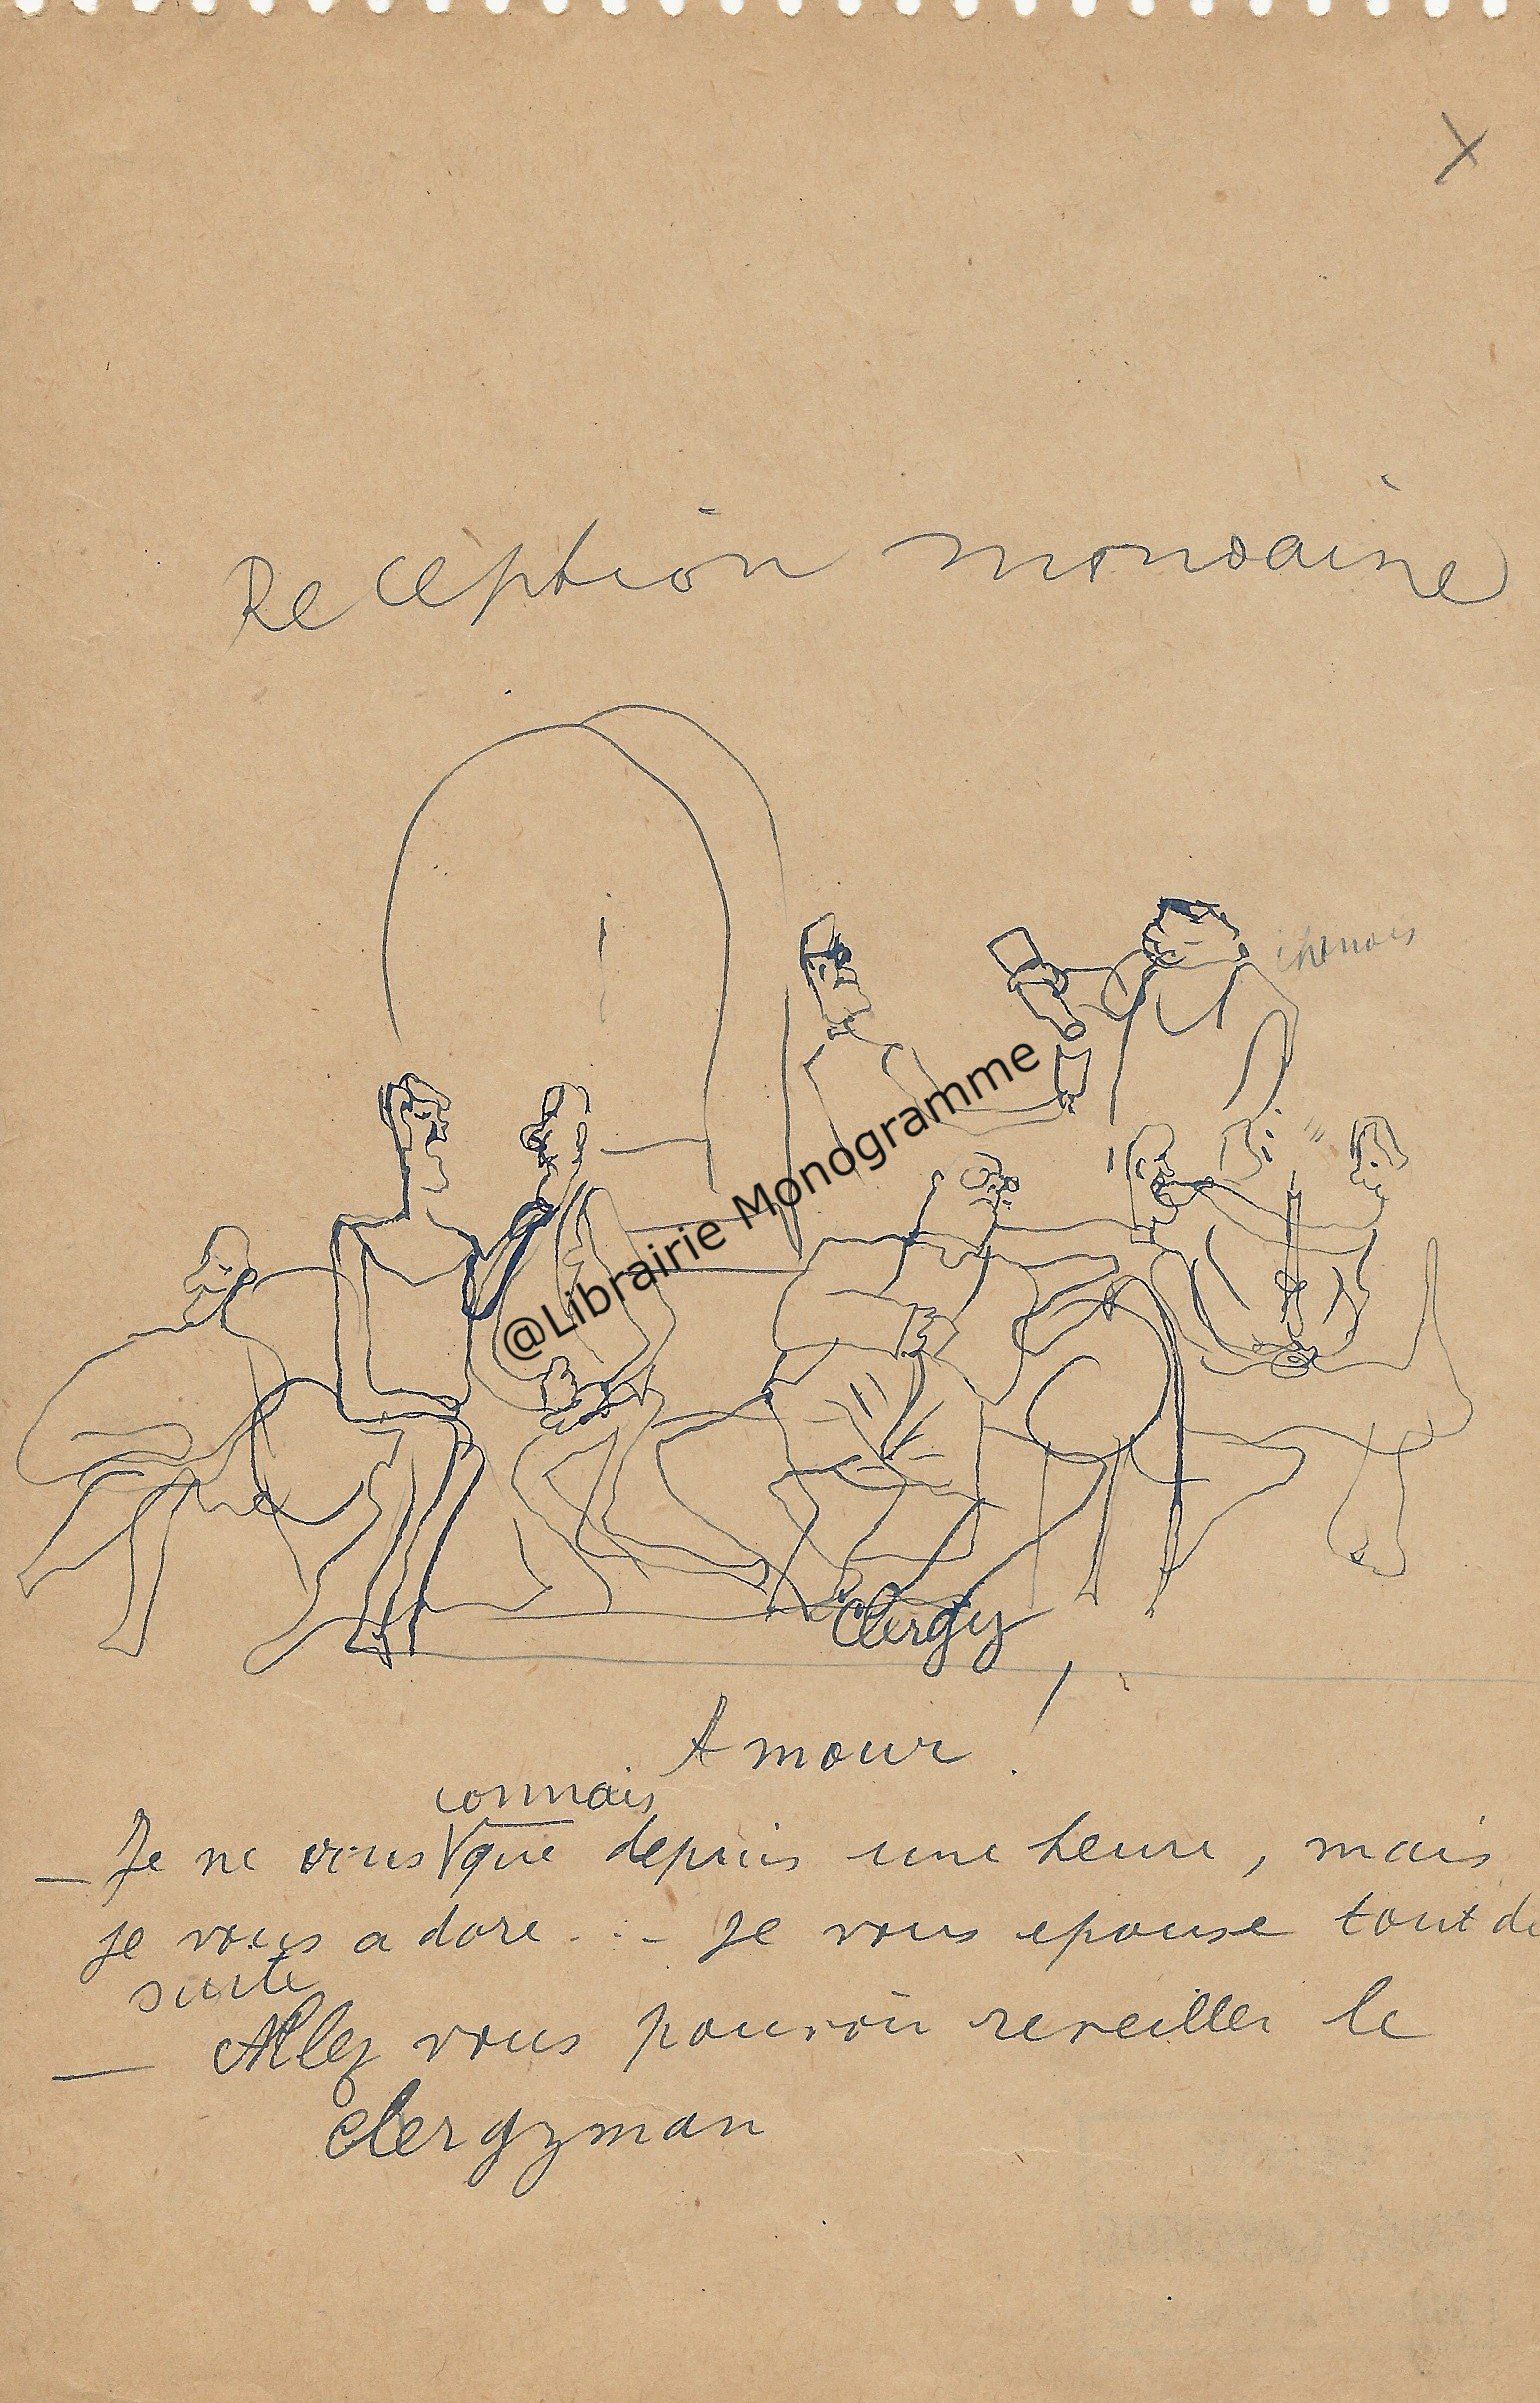 X
Reception mondaine
@Librairie Monogramme
Clergy
Amour !
connais
— Je ne vous V que depuis une heure, mais
je vous adore... - Je vous epouse tout de
suite
— Allez vous pouvoir reveiller le
clergyman